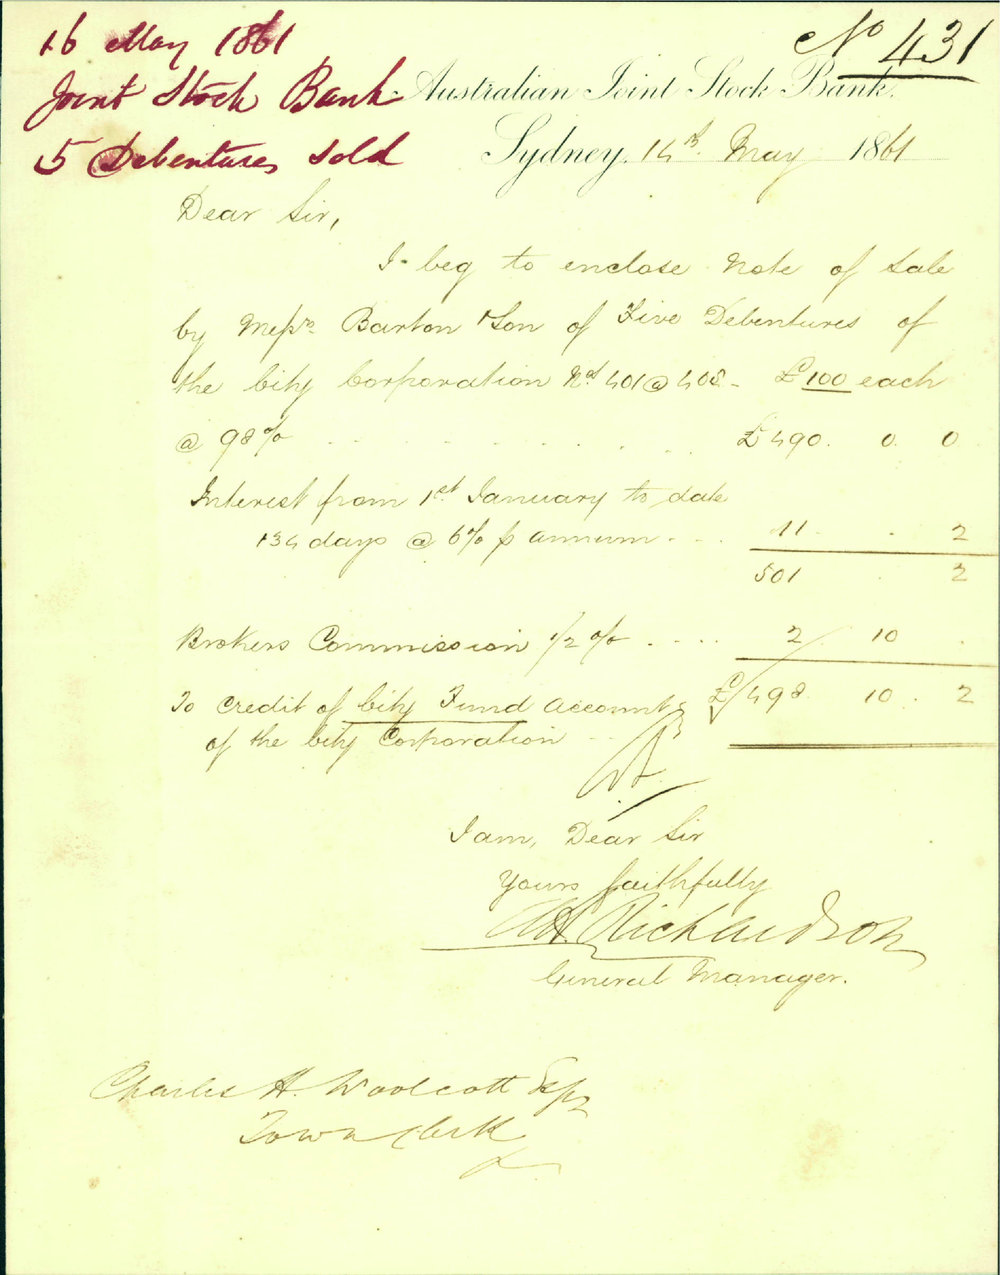 16 May 1861
Joint Stock Bank
5 Debentures sold
No 431
Australian Joint Stock Bank.
Sydney, 14th May 1861
Dear Sir,
I beg to enclose Note of Sale
by Messrs Barton & Son of Five Debentures of
the City Corporation Nos 401 @ 405 - £100 each
@ 98% £490. 0 0
Interest from 1st January to date
134 days @ 6% p annum 11 . 2
501 . 2
Brokers Commission 1/2 % 2 10 .
To credit of City Fund Account £498 10 . 2
of the City Corporation
I am, Dear Sir
Yours faithfully
Richardson
General Manager.
Charles H. Woolcott Esq
Town Clerk